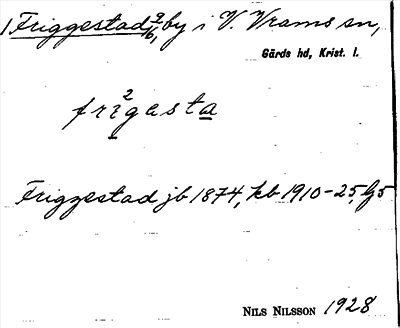 1 Friggestad 2/6, by i V. Vrams sn,
Gärds hd, Krist. l.
fri2gasta
Friggestad jb 1874, kb 1910-25,
NILS NILSSON 1928